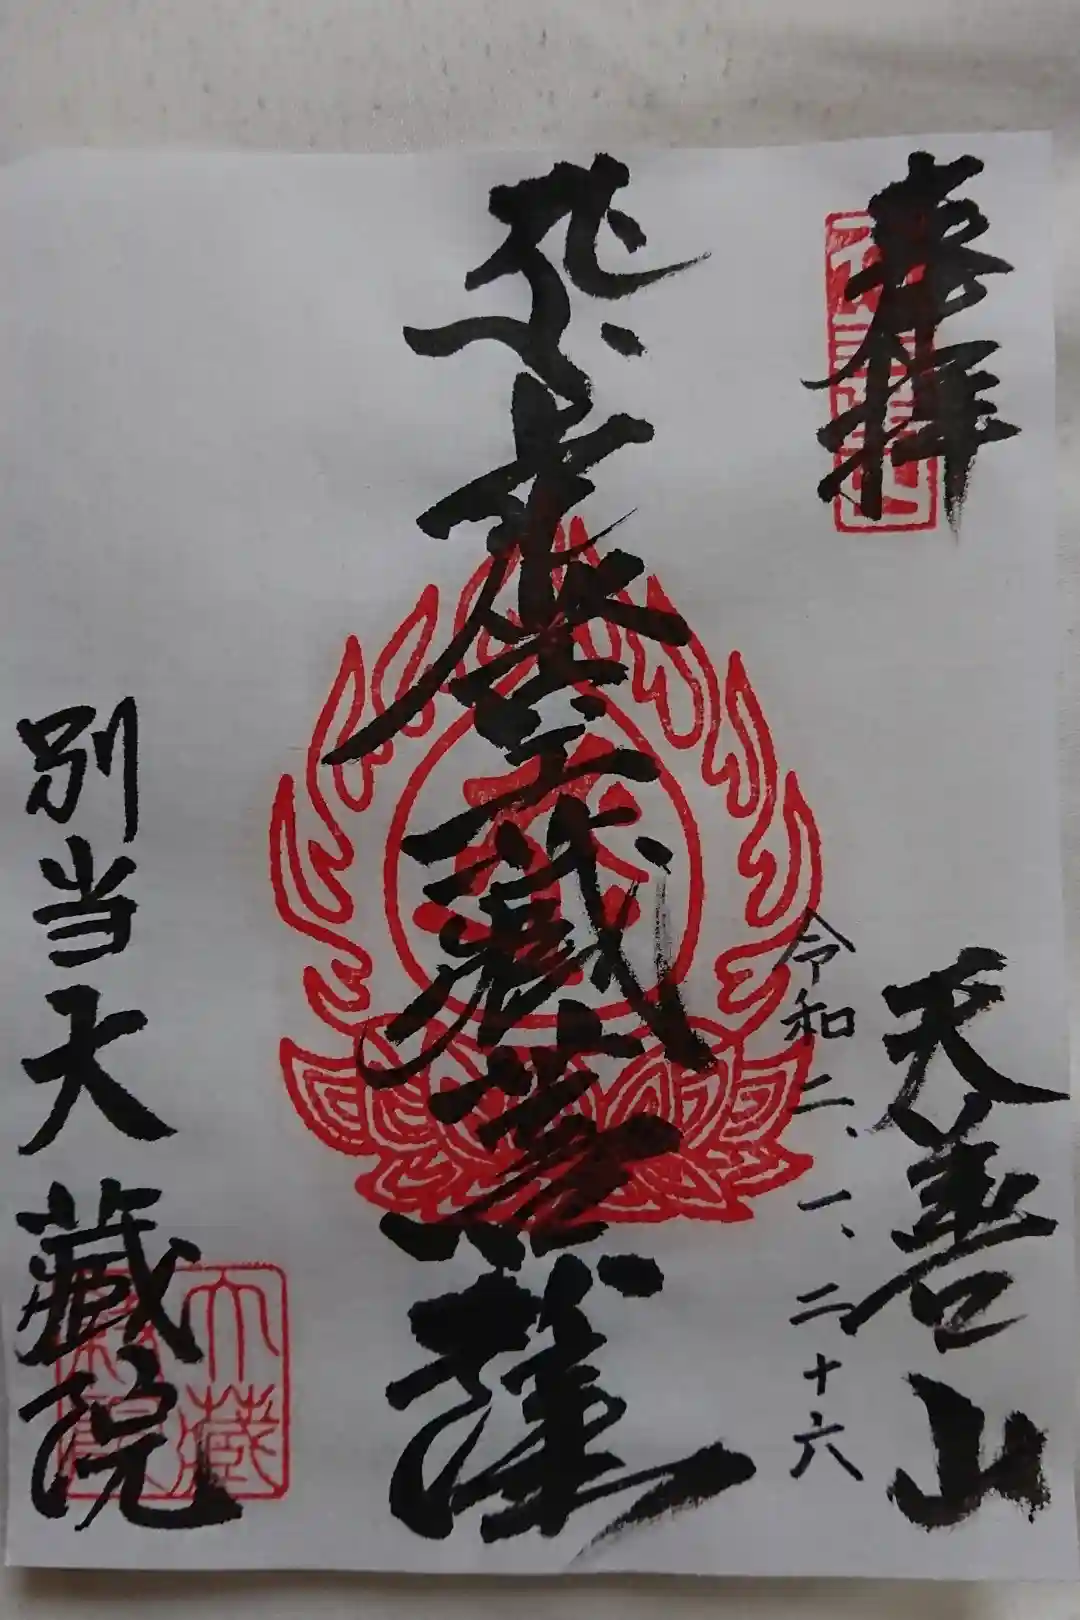 奉拝
天善山
令和二、一、二十六
虚空蔵菩薩
別当大蔵院
大蔵